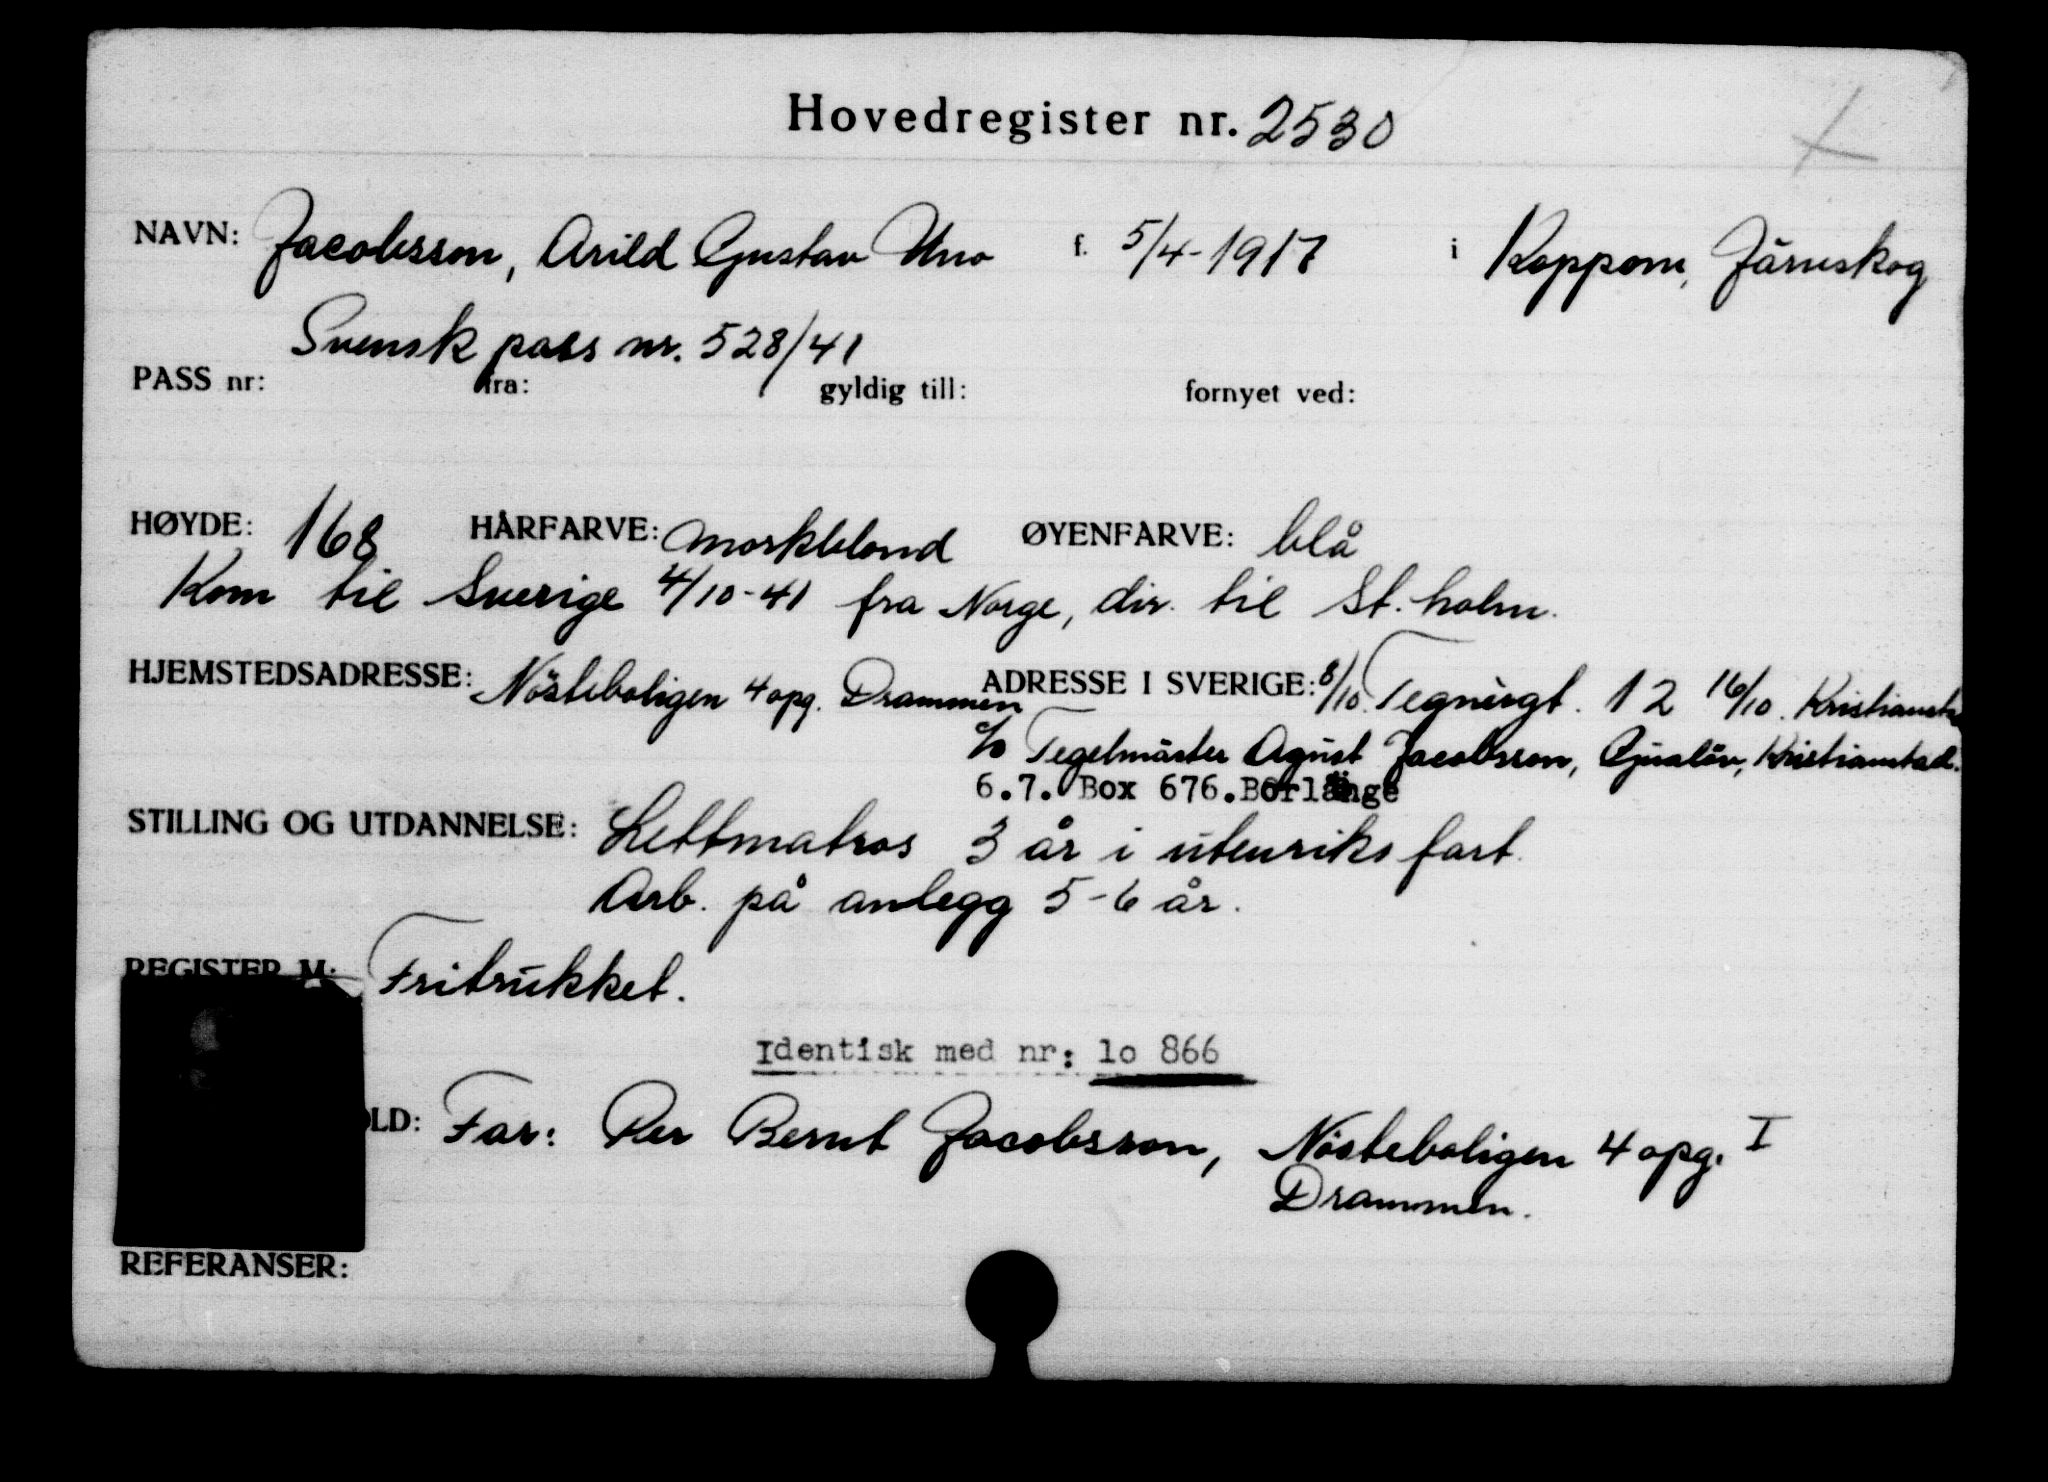 Hovedregister nr. 2530
NAVN: Jacobsson, Arild Gustav Uno f. 5/4-1917 i Koppom, Järnskog
Svensk pass nr. 528/41
PASS nr: fra: gyldig till: fornyet ved:
HØYDE: 168 HÅRFARVE: mørkblond ØYENFARVE: blå
Kom til Sverige 4/10-41 fra Norge, dir. til St.holm.
HJEMSTEDSADRESSE: Nösteboligen 4 opg. Drammen ADRESSE I SVERIGE: 8/10. Tegnérgt. 12 16/10. Kristianst
c/o Tegelmäster Agust Jacobsson, Gualöv, Kristianstad.
6.7. Box 676. Borlänge
STILLING OG UTDANNELSE: Lettmatros 3 år i utenriks fart.
Arb. på anlegg 5-6 år.
REGISTER M: Fritrukket.
Identisk med nr: 1o 866
OLD: Far: Per Bernt Jacobsson, Nösteboligen 4 opg. I
Drammen.
REFERANSER: